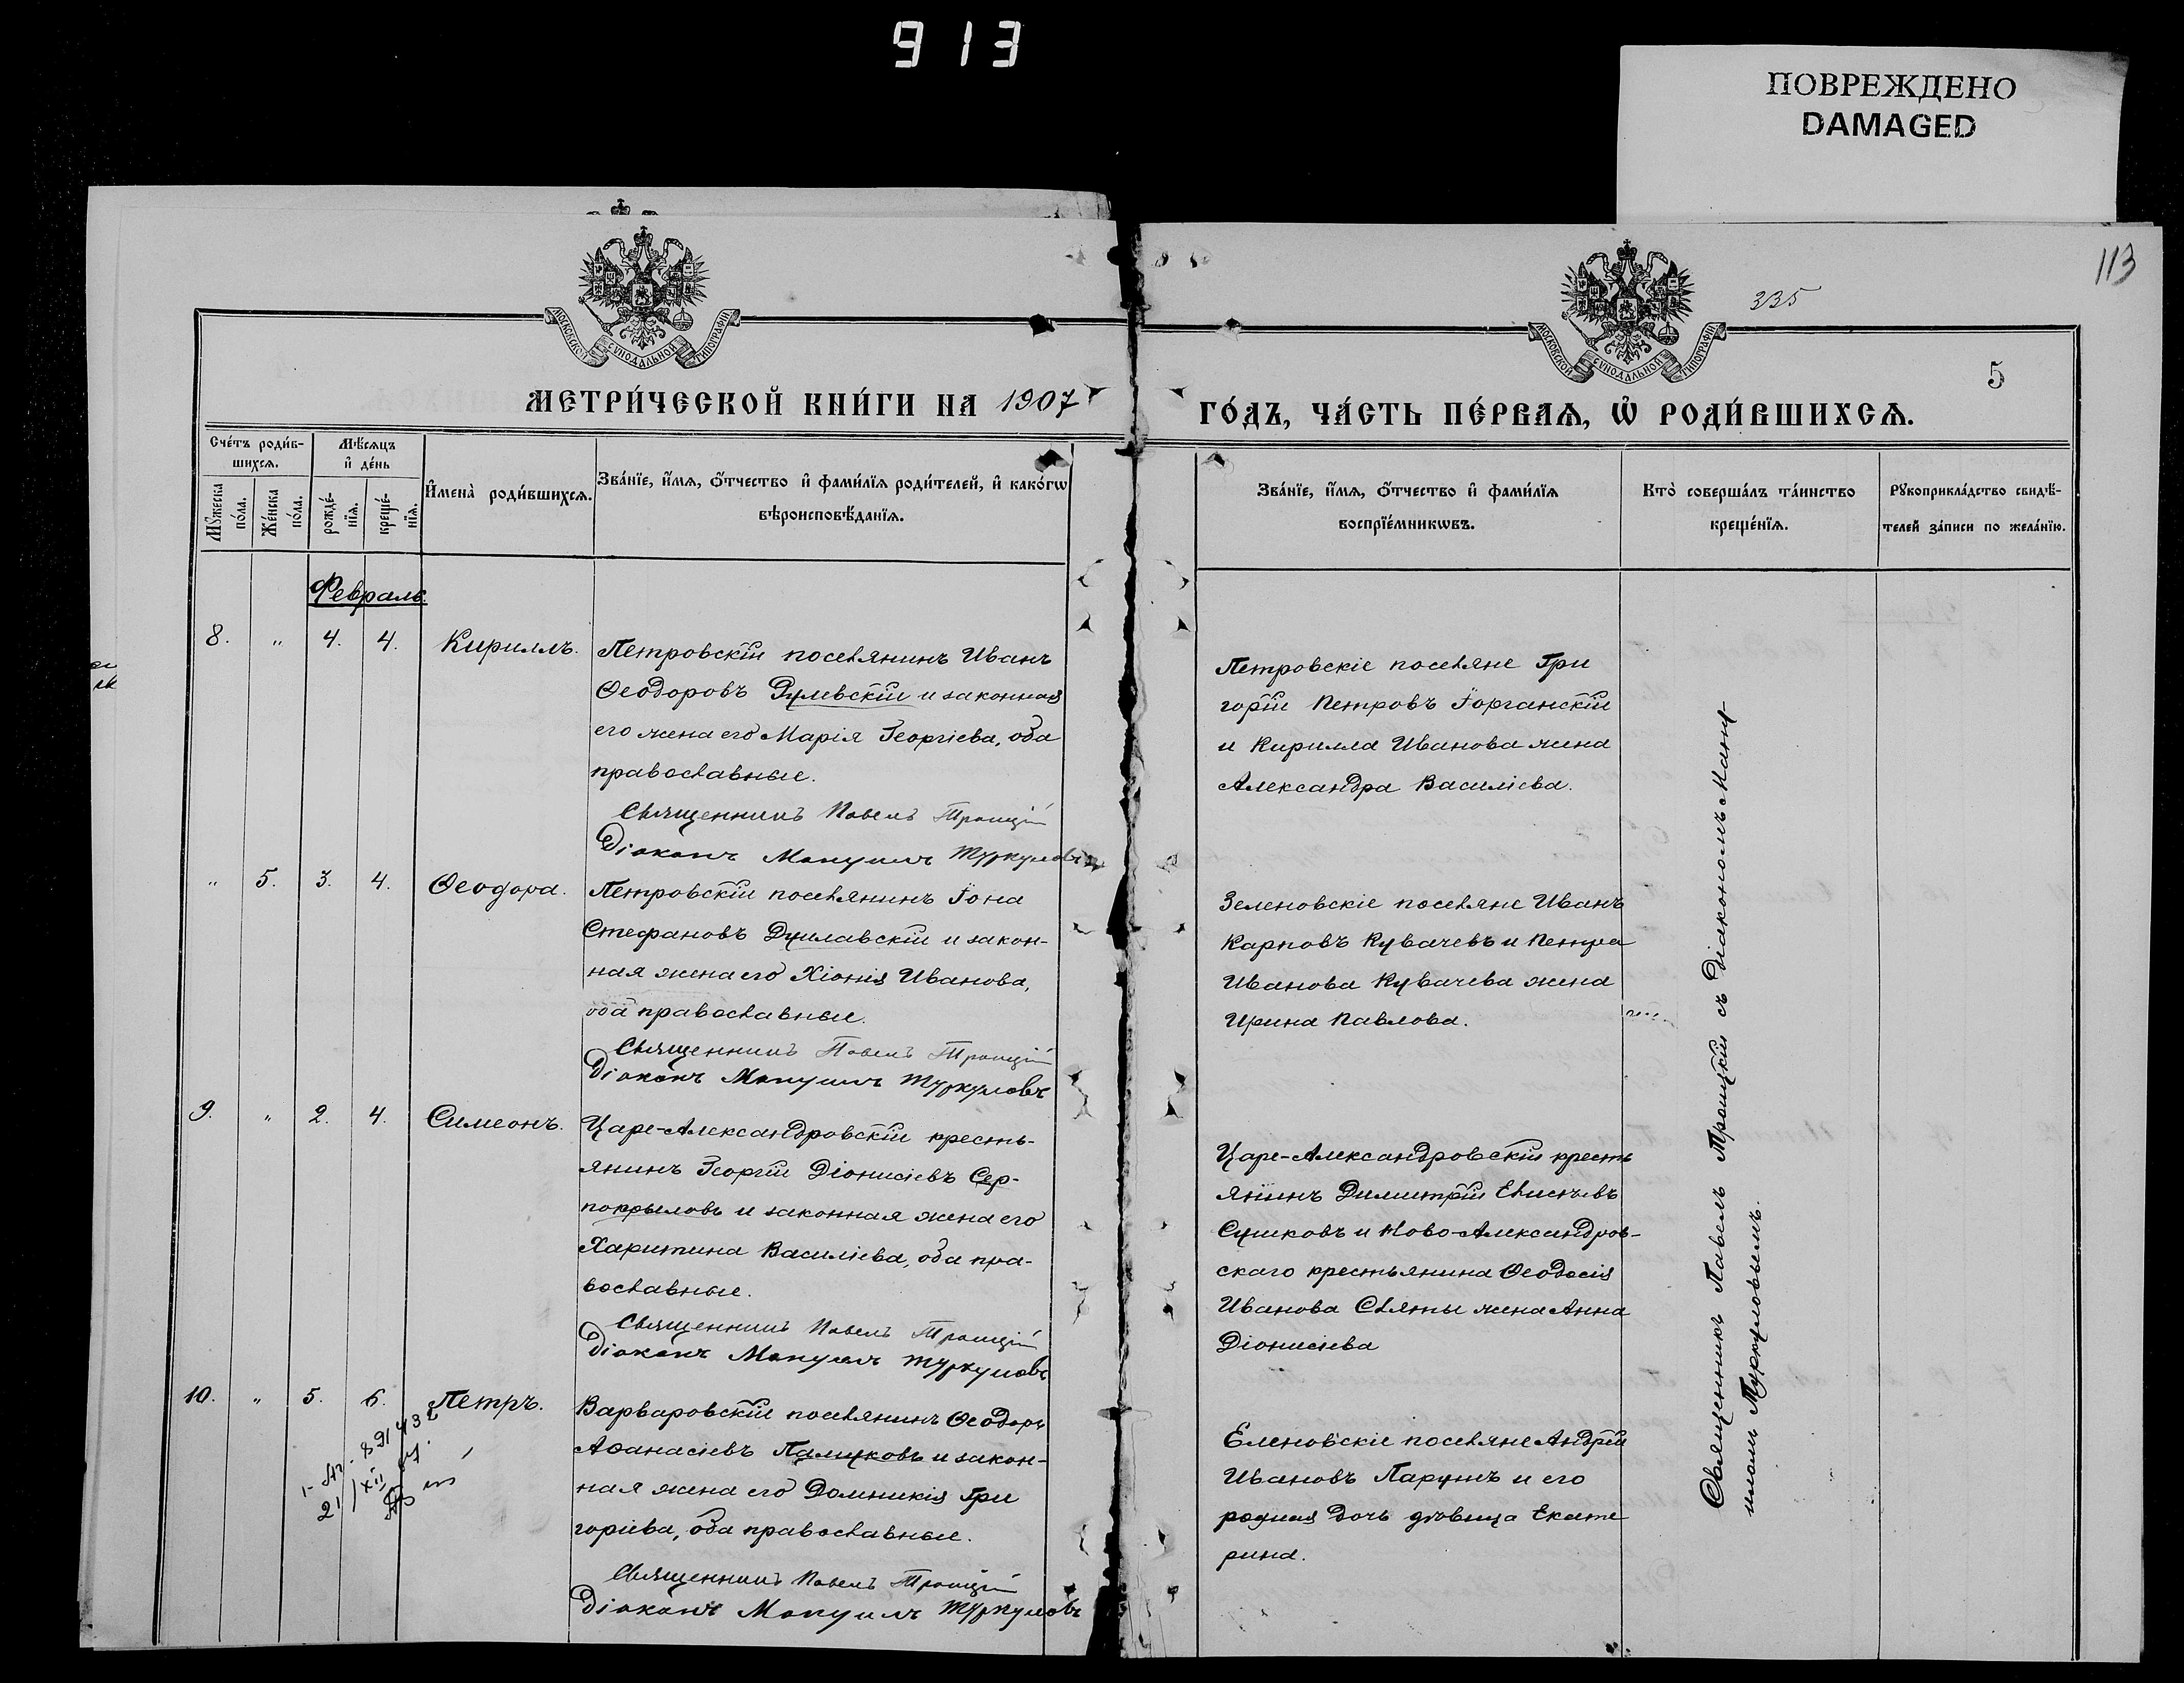 913
ПОВРЕЖДЕНО
DAMAGED
113
335
5
МОСКОВСКОЙ СѴНОДАЛЬНОЙ ТИПОГРАФІИ
МОСКОВСКОЙ СѴНОДАЛЬНОЙ ТИПОГРАФІИ
МЕТРИ́ЧЕСКОЙ КНИ́ГИ НА 1907
ГО́ДЪ, ЧА́СТЬ ПЕ́РВАѦ, Ѡ҆ РОДИ́ВШИХСѦ.
Сче́тъ роди́в-
шихсѧ.
Мѣ́сѧцъ
и҆ де́нь
Мꙋ́жеска
по́ла.
Же́нска
по́ла.
рожде́-
нїѧ.
креще́-
нїѧ.
И҆мена̀ роди́вшихсѧ.
Зва́нїе, и҆́мѧ, ѻ҆́тчество и҆ фами́лїѧ роди́телей, и҆ како́гѡ
вѣроисповѣ́данїѧ.
Зва́нїе, и҆́мѧ, ѻ҆́тчество и҆ фами́лїѧ
воспрїе́мникѡвъ.
Кто̀ соверша́лъ та́инство
креще́нїѧ.
Рꙋкоприкла́дство свидѣ́-
телей за́писи по жела́нїю.
Февраль.
8. " 4. 4. Кириллъ.
Петровскій поселянинъ Иванъ
Ѳеодоровъ Дулевскій и законная
его жена его Марія Георгіева, оба
православные.
Священникъ Павелъ Троицкій
Діаконъ Мануилъ Туркуловъ
Петровскіе поселяне Гри
горій Петровъ Горганскій
и Кирилла Иванова жена
Александра Василіева.
" 5. 3. 4. Ѳеодора.
Петровскій поселянинъ Іона
Стефановъ Дулавскій и закон-
ная жена его Хіонія Иванова,
оба православные.
Священникъ Павелъ Троицкій
Діаконъ Мануилъ Туркуловъ
Зеленовскіе поселяне Иванъ
Карповъ Кувачевъ и Петра
Иванова Кувачева жена
Ирина Павлова.
9. " 2. 4. Симеонъ.
Царе-Александровскій кресть-
янинъ Георгій Діонисіевъ Сер-
покрыловъ и законная жена его
Харитина Василіева, оба пра-
вославные.
Священникъ Павелъ Троицкій
Діаконъ Мануилъ Туркуловъ
Царе-Александровскій кресть
янинъ Димитрій Елисѣевъ
Сушковъ и Ново-Александров-
скаго крестьянина Ѳеодосія
Иванова Святы жена Анна
Діонисіева
10. " 5. 6. Петръ.
Варваровскій поселянинъ Ѳеодоръ
Аѳанасіевъ Палцковъ и закон-
ная жена его Домникія Гри
горіева, оба православные.
Священникъ Павелъ Троицкій
Діаконъ Мануилъ Туркуловъ
Еленовскіе поселяне Андрей
Ивановъ Парунъ и его
родная дочь дѣвица Екате
рина.
Священникъ Павелъ Троицкій съ діакономъ Ману
иломъ Туркуловымъ.